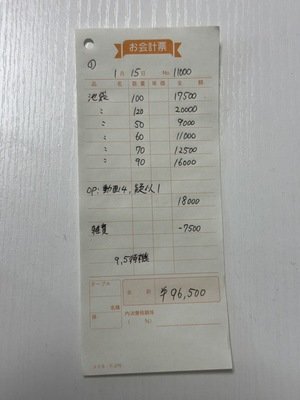 お会計票
①
1月15日 No. 11000
品名 数量 単価 金額
池袋 100 17500
〃 120 20000
〃 50 9000
〃 60 11000
〃 70 12500
〃 90 16000
OP: 動画4,
18000
雑費 -7500
9,5待機
テーブル
名様
係
合計 ¥96,500
内消費税額等
(%)